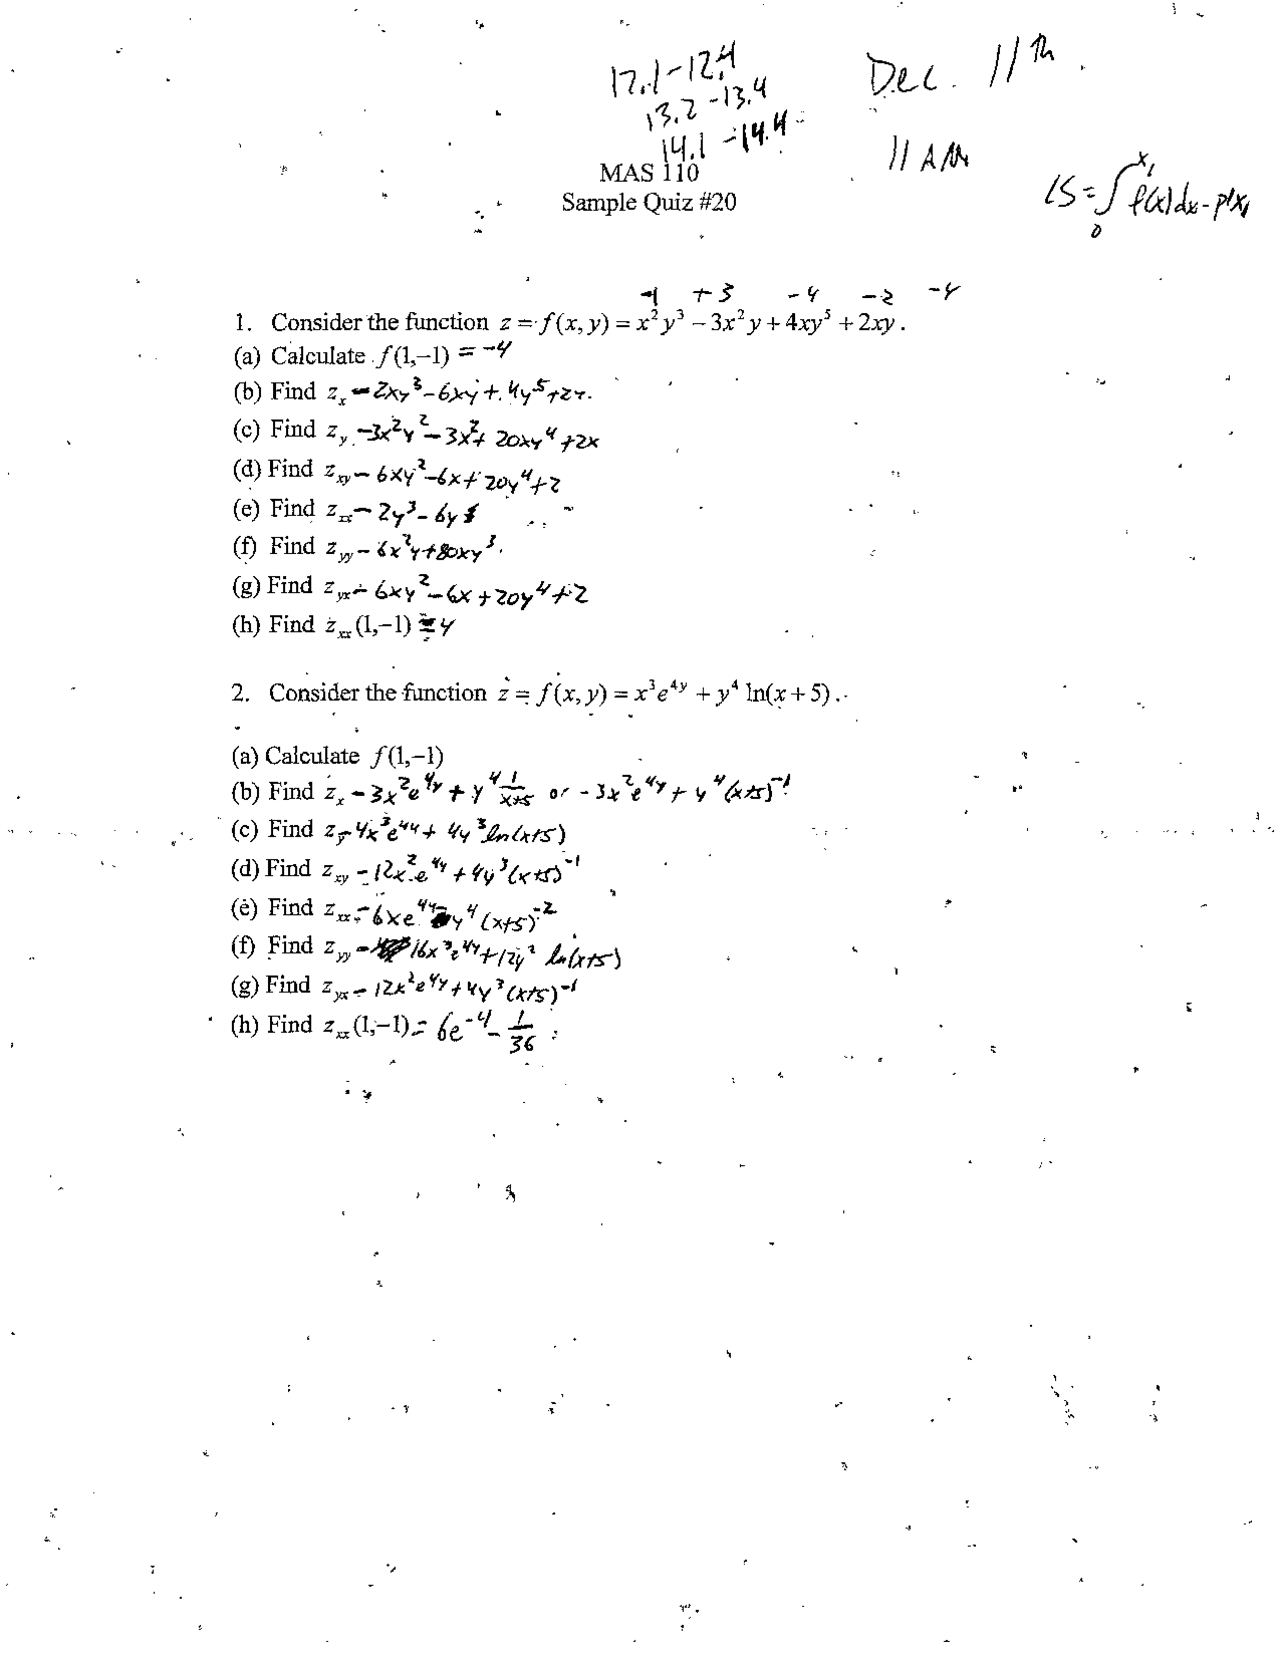 12.1-12.4
13.2-13.4
14.1-14.4
Dec. 11th.
11 AM
CS = ∫₀^x₁ f(x)dx - p'x₁
MAS 110
Sample Quiz #20
-1 +3 -4 -2 -4
1. Consider the function z = f(x, y) = x²y³ - 3x²y + 4xy⁵ + 2xy.
(a) Calculate f(1,-1) = -4
(b) Find z_x - 2xy³ - 6xy + 4y⁵ + 2y.
(c) Find z_y - 3x²y² - 3x² + 20xy⁴ + 2x
(d) Find z_xy - 6xy² - 6x + 20y⁴ + 2
(e) Find z_xx - 2y³ - 6y
(f) Find z_yy - 6x²y + 80xy³.
(g) Find z_yx - 6xy² - 6x + 20y⁴ + 2
(h) Find z_xx(1,-1) = 4
2. Consider the function z = f(x, y) = x³e^4y + y⁴ ln(x + 5).
(a) Calculate f(1,-1)
(b) Find z_x - 3x²e^4y + y⁴ 1/x+5 or - 3x²e^4y + y⁴(x+5)⁻¹
(c) Find z_y - 4x³e^4y + 4y³ ln(x+5)
(d) Find z_xy - 12x²e^4y + 4y³(x+5)⁻¹
(e) Find z_xx - 6xe^4y - y⁴(x+5)⁻²
(f) Find z_yy - 16x³e^4y + 12y² ln(x+5)
(g) Find z_yx - 12x²e^4y + 4y³(x+5)⁻¹
(h) Find z_xx(1,-1) = 6e⁻⁴ - 1/36